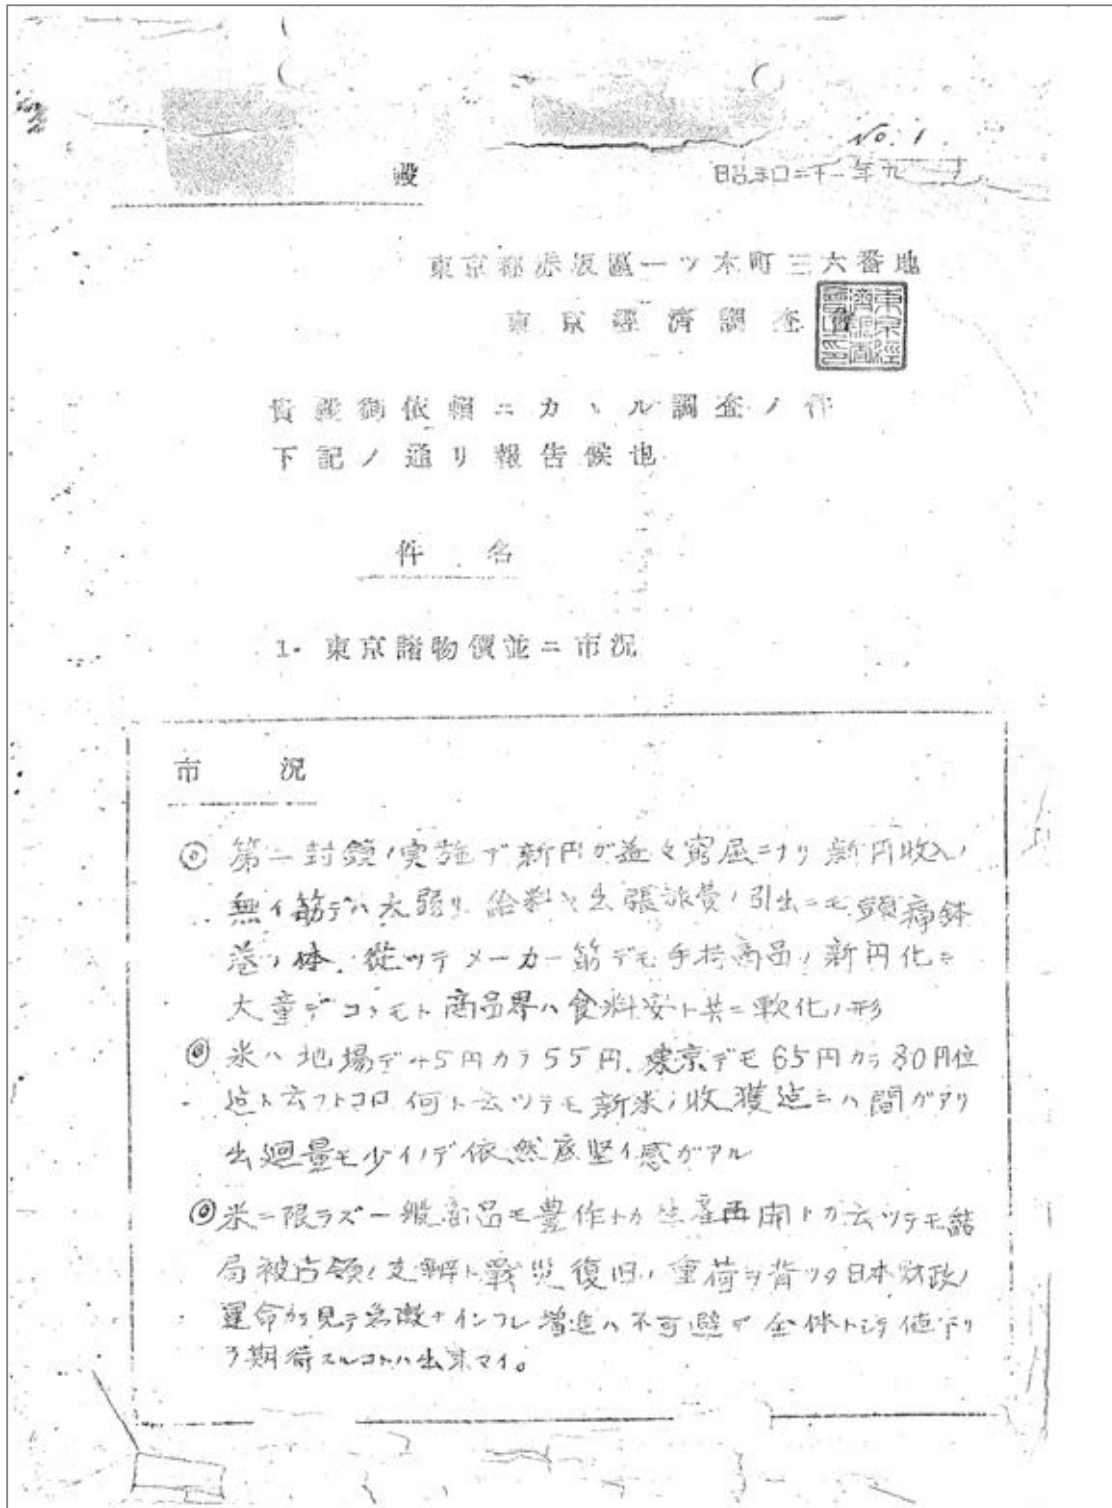 No. 1
殿
昭和二十一年九
東京都赤坂區一ツ木町三六番地
東京經濟調査會
貴殿御依頼ニカヽル調査ノ件
下記ノ通リ報告候也
件名
1. 東京諸物價並ニ市況
市況
◎ 第一封鎖ノ実施デ新円ガ益々窮屈ニナリ新円收入ノ
無イ筋デハ大弱リ 給料ヤ出張旅費ノ引出ニモ頭痛鉢
巻ノ体、從ツテメーカー筋デモ手持商品ノ新円化ニ
大童デコヽモト商品界ハ食料安ト共ニ軟化ノ形
◎ 米ハ地場デ45円カラ55円、東京デモ65円カラ80円位
迠ト云フトコロ 何ト云ツテモ新米ノ收獲迠ニハ間ガアリ
出廻量モ少イノデ依然底堅イ感ガアル
◎ 米ニ限ラズ一般商品モ豊作トカ生産再開トカ云ツテモ結
局被占領ノ支辨ト戰災復旧ノ重荷ヲ背ツタ日本財政ノ
運命カラ見テ急激ナインフレ增進ハ不可避デ全体トシテ値下リ
ヲ期待スルコトハ出来マイ。